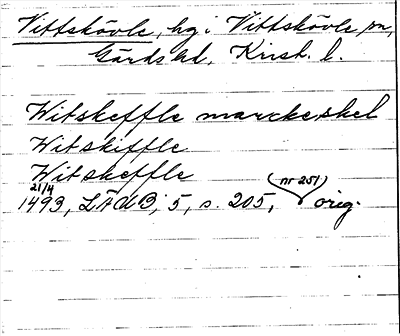 Vittskövle, hg i Vittskövle sn,
Gärds hd, Krist. l.
Witskeffle marckeskel
Witskiffle
Witskeffle
21/4 (nr 251)
1493, LÄdB, 5, s. 205, orig.